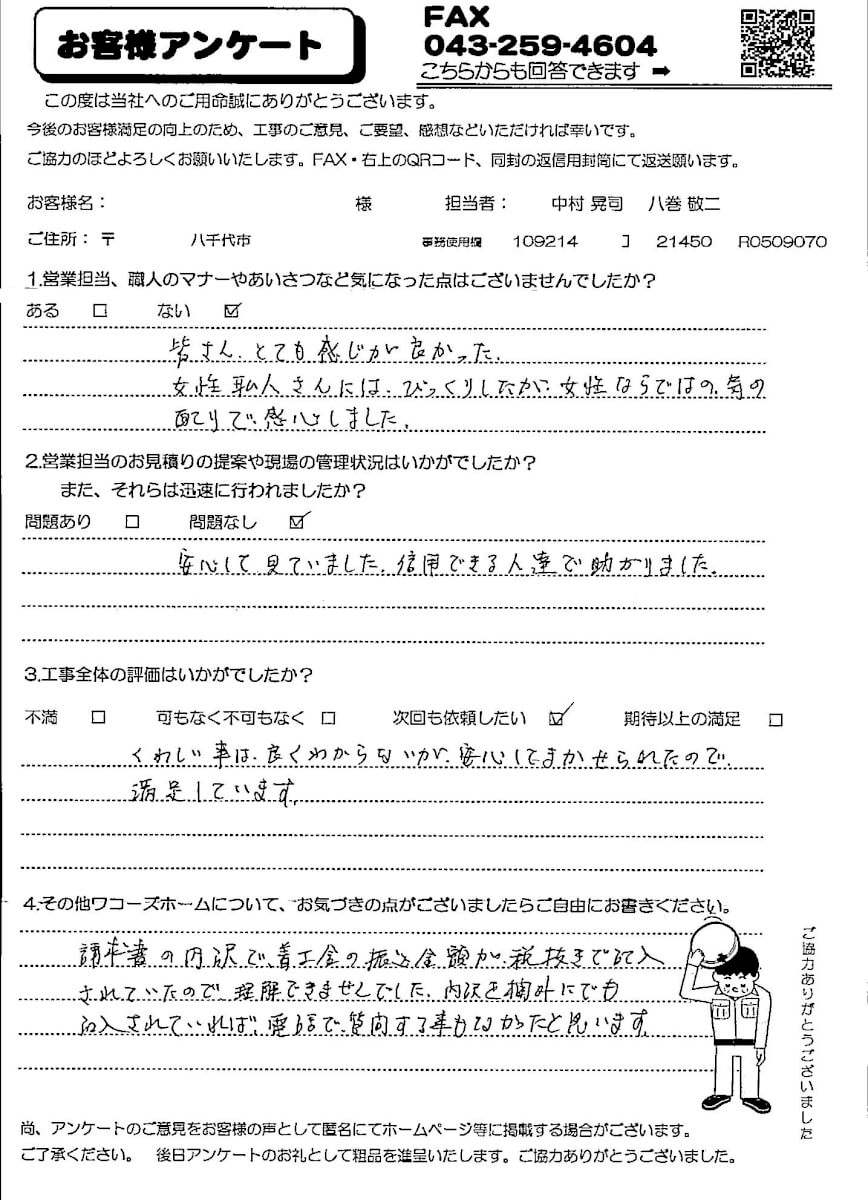 お客様アンケート
FAX
043-259-4604
こちらからも回答できます ➡
この度は当社へのご用命誠にありがとうございます。
今後のお客様満足の向上のため、工事のご意見、ご要望、感想などいただければ幸いです。
ご協力のほどよろしくお願いいたします。FAX・右上のQRコード、同封の返信用封筒にて返送願います。
お客様名： 様 担当者： 中村 晃司 八巻 敬二
ご住所： 〒 八千代市 事務使用欄 109214 コ 21450 R0509070
1.営業担当、職人のマナーやあいさつなど気になった点はございませんでしたか？
ある □ ない ☑
皆さん、とても感じが良かった。
女性職人さんには、びっくりしたが、女性ならではの、気の
配りで、感心しました。
2.営業担当のお見積りの提案や現場の管理状況はいかがでしたか？
また、それらは迅速に行われましたか？
問題あり □ 問題なし ☑
安心して見ていました。信用できる人達で助かりました。
3.工事全体の評価はいかがでしたか？
不満 □ 可もなく不可もなく □ 次回も依頼したい ☑ 期待以上の満足 □
くわしい事は、良くわからないが、安心してまかせられたので、
満足しています。
4.その他ワコーズホームについて、お気づきの点がございましたらご自由にお書きください。
請求書の内訳で、着工金の振込金額が、税抜きで記入
されていたので、理解できませんでした。内訳を欄外にでも
記入されていれば、電話で、質問する事もなかったと思います。
ご協力ありがとうございました
尚、アンケートのご意見をお客様の声として匿名にてホームページ等に掲載する場合がございます。
ご了承ください。 後日アンケートのお礼として粗品を進呈いたします。ご協力ありがとうございました。